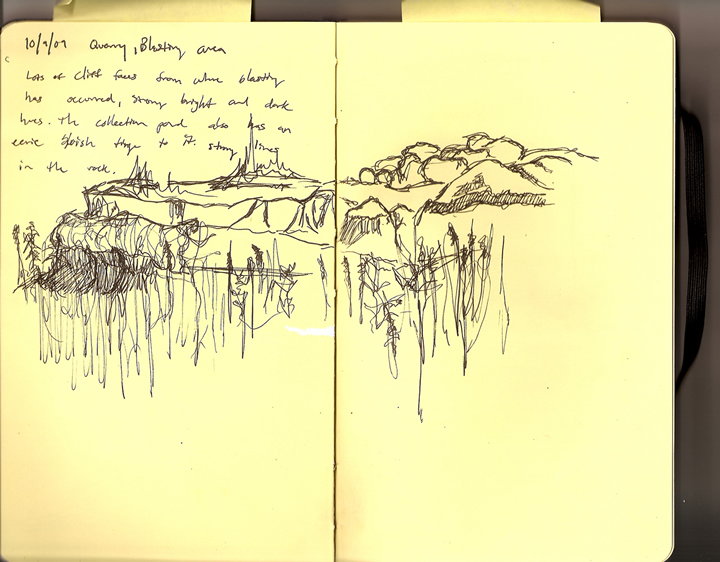 10/9/09 Quarry, Blasting area
Lots of cliff faces from where blasting
has occurred, strong bright and dark
hues. The collection pond also has an
eerie tinge to it. strong lines
in the rock.